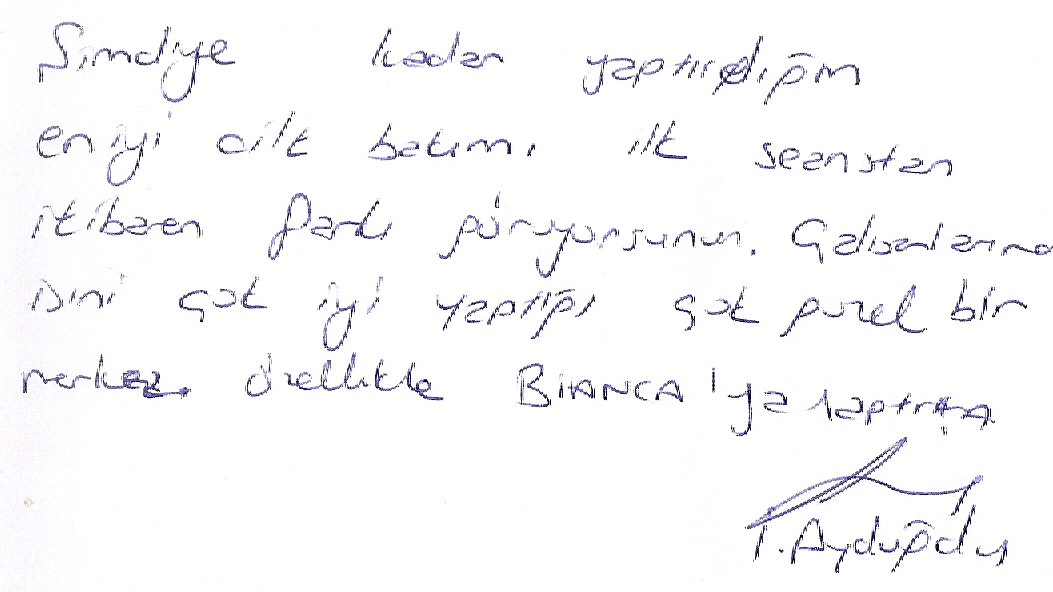 Şimdiye kadar yaptırdığım
en iyi cilt bakımı. ilk seanstan
itibaren farkı görüyorsunuz. Çalışanlarının
işini çok iyi yaptığı çok güzel bir
merkez. özellikle BIANCA'ya yaptırın
T. Aydoğdu